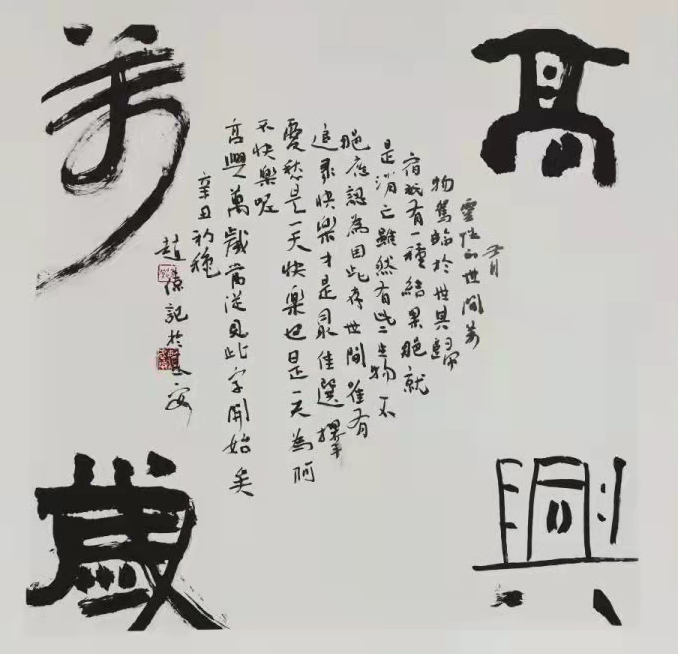 高興
萬歲
靈性的世間萬
物於世其歸
宿祇有一種結果就
是消亡雖然有些生物不
應認為因此存世間唯有
追求快樂才是最佳選擇
憂愁是一天快樂也是一天為阿
不快樂呢
高興萬歲當從見此字開始矣
辛丑初秋
趙記於長安